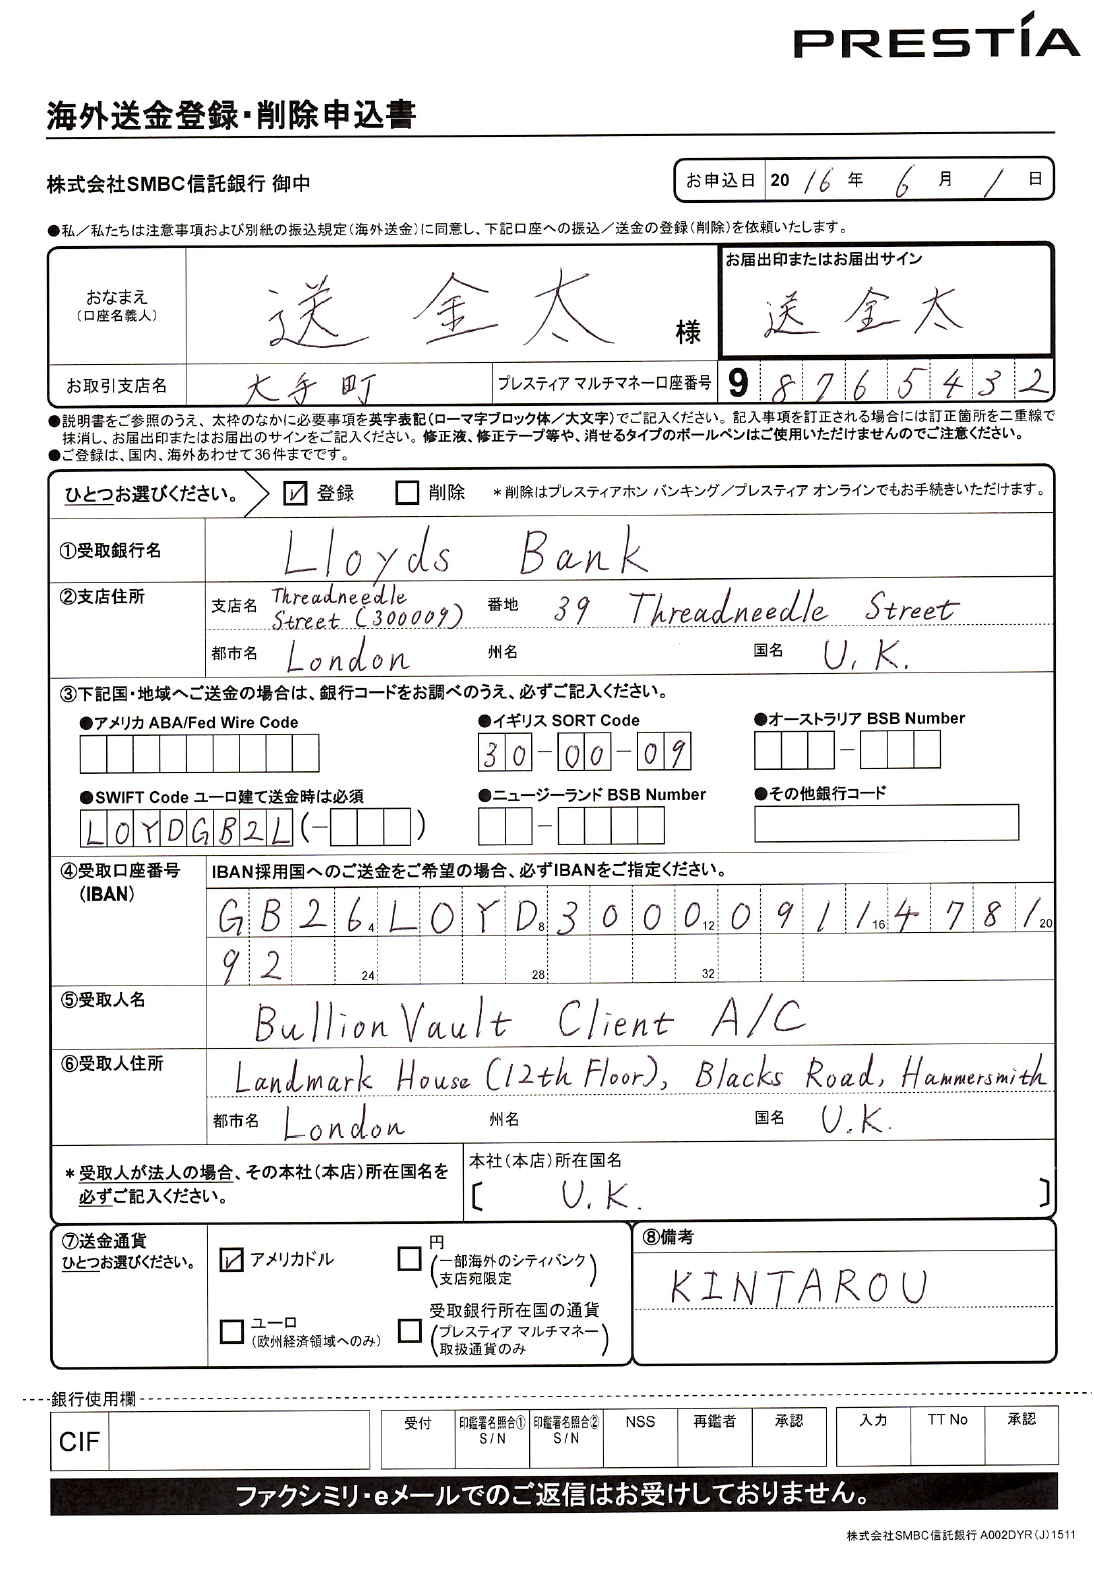 PRESTÍA
海外送金登録・削除申込書
株式会社SMBC信託銀行 御中
お申込日 20 16 年 6 月 1 日
●私／私たちは注意事項および別紙の振込規定（海外送金）に同意し、下記口座への振込／送金の登録（削除）を依頼いたします。
おなまえ
（口座名義人）
送 金 太 様
お届出印またはお届出サイン
送 金 太
お取引支店名 大手町 プレスティア マルチマネー口座番号 9 8 7 6 5 4 3 2
●説明書をご参照のうえ、太枠のなかに必要事項を英字表記（ローマ字ブロック体／大文字）でご記入ください。記入事項を訂正される場合には訂正箇所を二重線で
抹消し、お届出印またはお届出のサインをご記入ください。修正液、修正テープ等や、消せるタイプのボールペンはご使用いただけませんのでご注意ください。
●ご登録は、国内、海外あわせて36件までです。
ひとつお選びください。 登録 削除 ＊削除はプレスティアホン バンキング／プレスティア オンラインでもお手続きいただけます。
①受取銀行名 Lloyds Bank
②支店住所 支店名 Threadneedle
Street (300009) 番地 39 Threadneedle Street
都市名 London 州名 国名 U.K.
③下記国・地域へご送金の場合は、銀行コードをお調べのうえ、必ずご記入ください。
●アメリカ ABA/Fed Wire Code ●イギリス SORT Code ●オーストラリア BSB Number
30-00-09 -
●SWIFT Code ユーロ建て送金時は必須 ●ニュージーランド BSB Number ●その他銀行コード
LOYDGB2L (- ) -
④受取口座番号
（IBAN）
IBAN採用国へのご送金をご希望の場合、必ずIBANをご指定ください。
G B 2 6 4 L O Y D 8 3 0 0 0 12 0 9 1 1 16 4 7 8 1 20
9 2 24 28 32
⑤受取人名 BullionVault Client A/C
⑥受取人住所 Landmark House (12th Floor), Blacks Road, Hammersmith
都市名 London 州名 国名 U.K.
＊受取人が法人の場合、その本社（本店）所在国名を
必ずご記入ください。
本社（本店）所在国名
[ U.K. ]
⑦送金通貨
ひとつお選びください。
アメリカドル
円
（一部海外のシティバンク
支店宛限定）
ユーロ
（欧州経済領域へのみ）
受取銀行所在国の通貨
（プレスティア マルチマネー
取扱通貨のみ）
⑧備考
KINTAROU
銀行使用欄
CIF
受付 印鑑署名照合① S/N 印鑑署名照合② S/N NSS 再鑑者 承認 入力 TT No 承認
ファクシミリ・eメールでのご返信はお受けしておりません。
株式会社SMBC信託銀行 A002DYR（J）1511